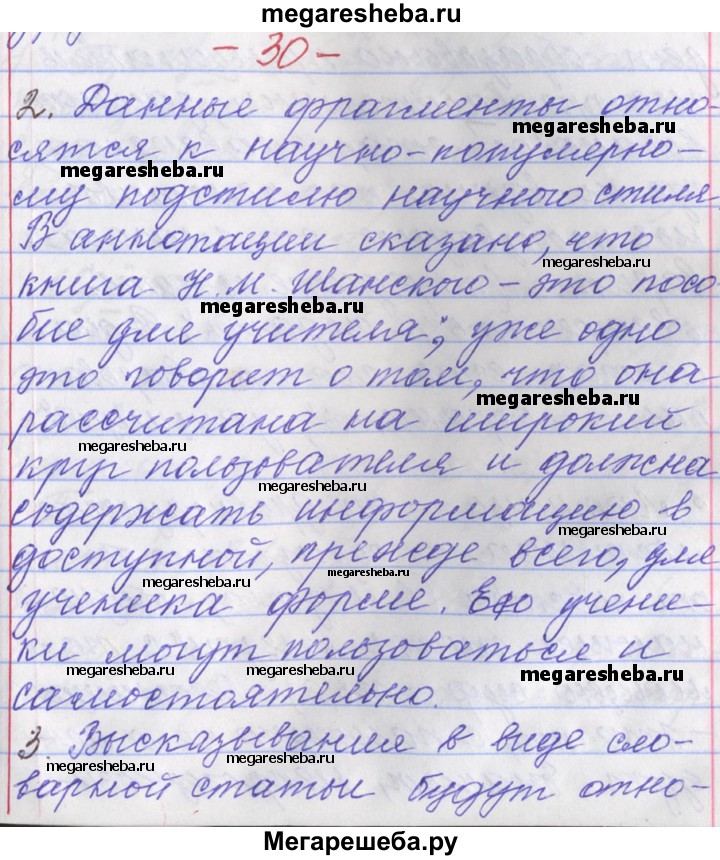 megaresheba.ru
- 30 -
2. Данные фрагменты отно-
megaresheba.ru
сятся к научно-популярно-
megaresheba.ru
му подстилю научного стиля
В аннотации сказано, что
megaresheba.ru
книга Н.М. Шанского - это посо
megaresheba.ru
бие для учителя; уже одно
это говорит о том, что она
megaresheba.ru
рассчитана на широкий
megaresheba.ru
круг пользователя и должна
megaresheba.ru
содержать информацию в
megaresheba.ru
доступной, прежде всего, для
megaresheba.ru megaresheba.ru
ученика форме. Ею учени-
ки могут пользоваться и
megaresheba.ru megaresheba.ru megaresheba.ru
самостоятельно.
3. Высказывания в виде сло-
megaresheba.ru megaresheba.ru
варной статьи будут отно-
Мегарешеба.ру